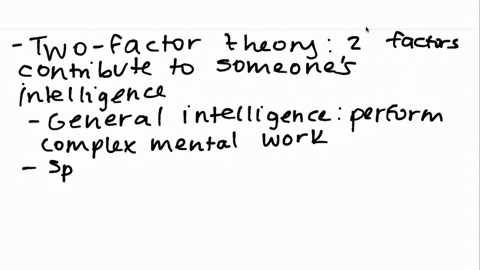 - Two-factor theory: 2 factors
contribute to someone's
intelligence
- General intelligence: perform
complex mental work
- Sp